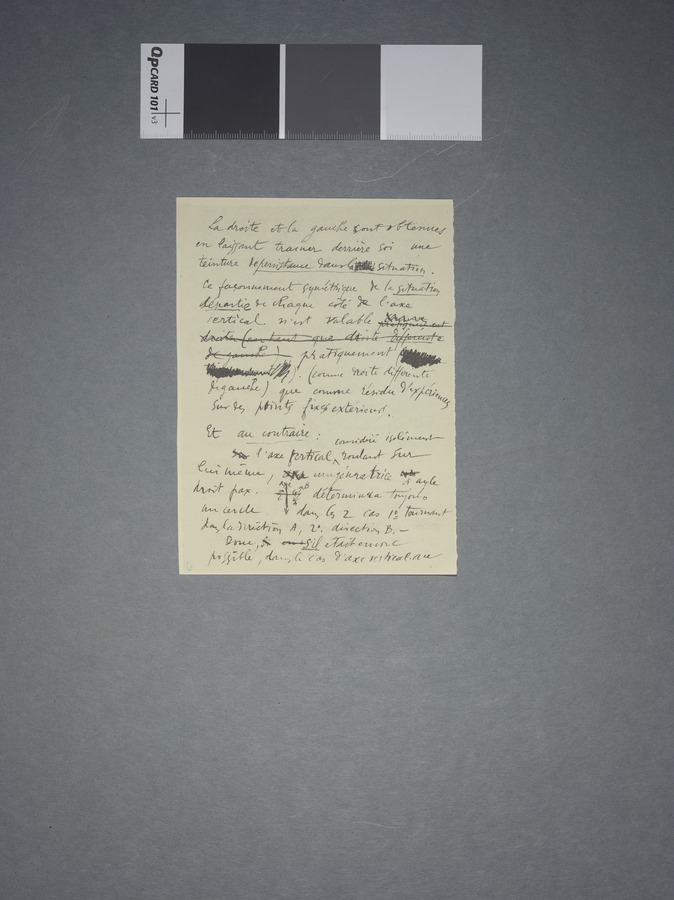 QPCARD 101 v3
La droite et la gauche sont obtenues
en laissant trainer derrière soi une
teinture de persistance dans la situation.
Ce façonnement symétrique de la situation
départie de chaque côté de l'axe
vertical n'est valable
droite (en tant que droite différente
de gauche) pratiquement
(comme droite différente
de gauche) que comme résidu d'expériences
sur des points fixes extérieurs.
Et au contraire : considéré isolément
l'axe vertical roulant sur
lui même, une génératrice à angle
droit par ex. déterminera toujours
un cercle dans les 2 cas 1º tournant
dans la direction A, 2º direction B. —
Donc, s'il était encore
possible, dans le cas d'axe vertical au